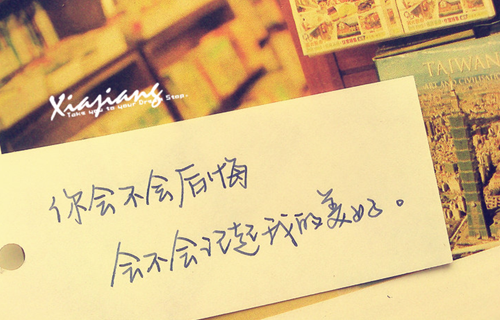 Xiajiang
Take you to your Dream Stop.
TAIWAN
你会不会后悔
会不会记起我的美好。